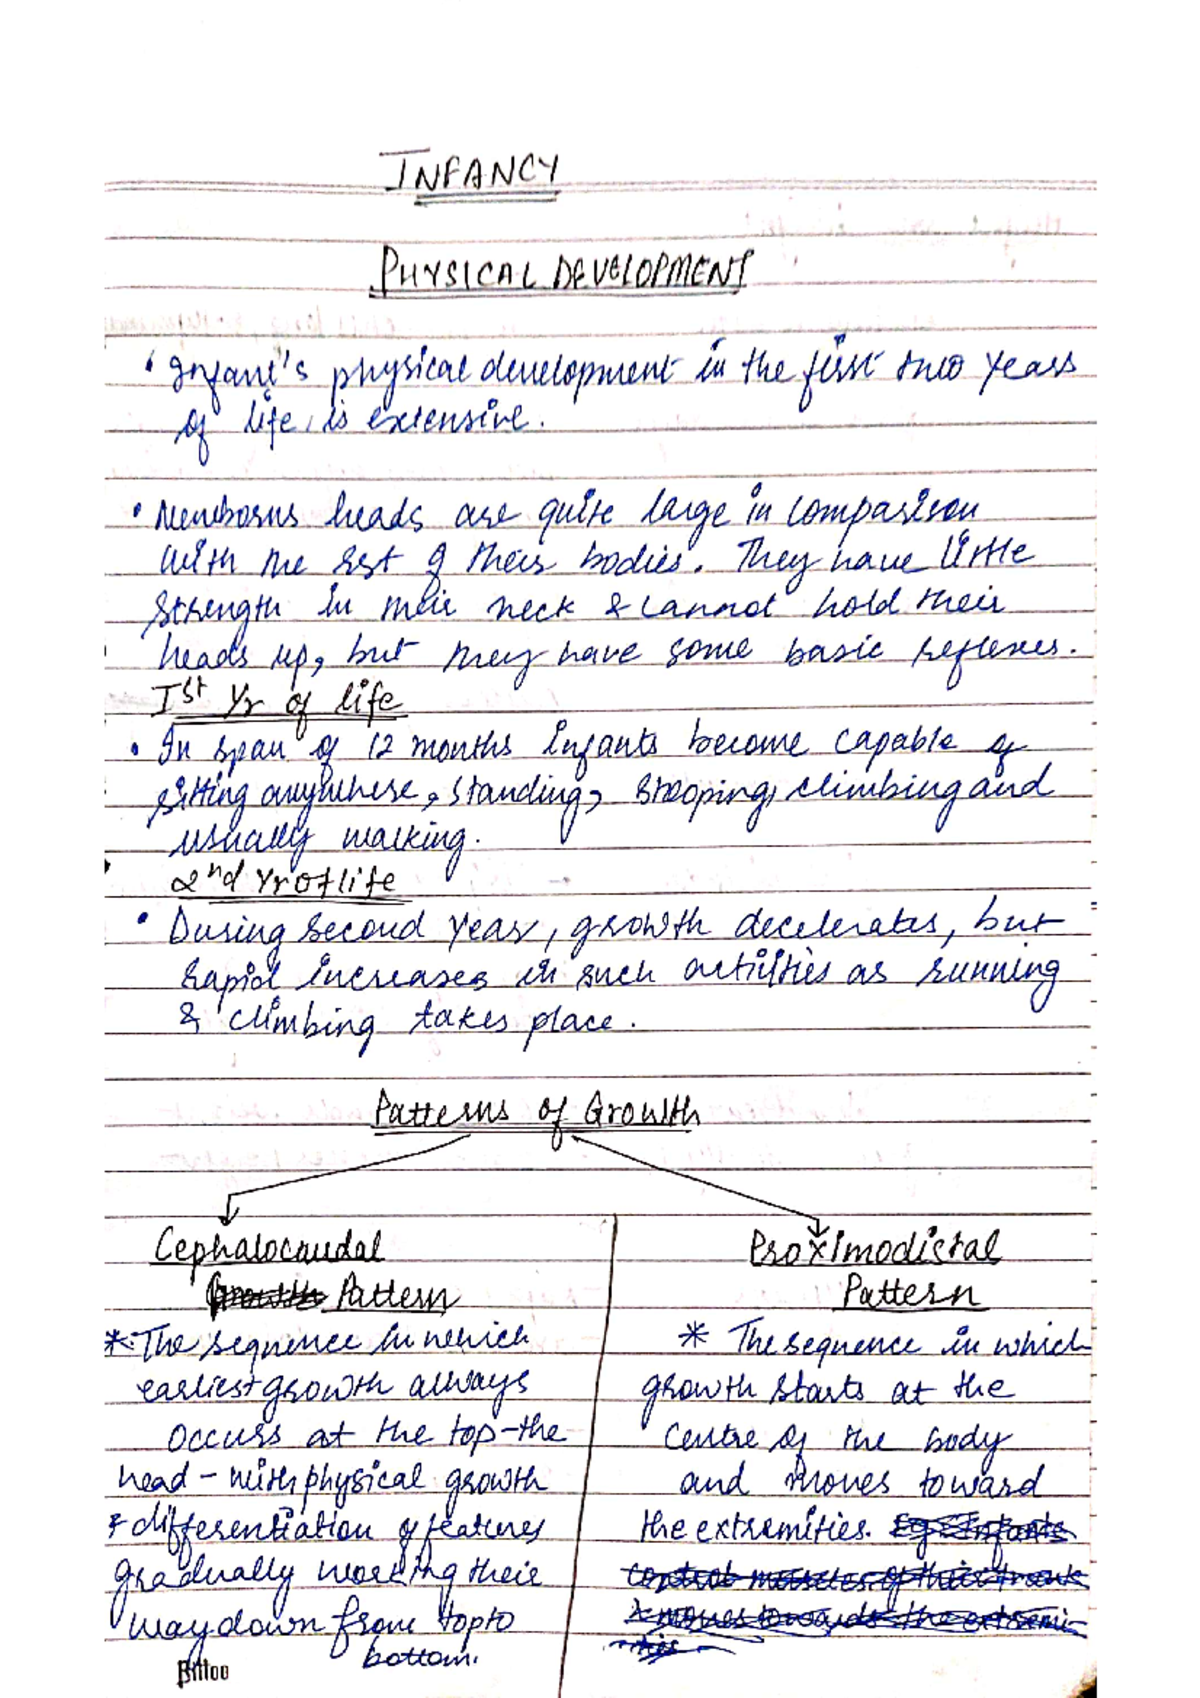 INFANCY
PHYSICAL DEVELOPMENT
• Infant's physical development in the first two years
of life, is extensive.
• Newborns heads are quite large in comparison
with the rest of their bodies. They have little
strength in their neck & cannot hold their
heads up, but they have some basic reflexes.
Ist Yr of life
• In span of 12 months infants become capable of
sitting anywhere, standing, stooping, climbing and
usually walking.
2nd Yr of life
• During second year, growth decelerates, but
rapid increases in such activities as running
& climbing takes place.
Patterns of Growth
Cephalocaudal
Growth Pattern
* The sequence in which
earliest growth always
occurs at the top-the
head - with physical growth
& differentiation of features
gradually working their
way down from top to
bottom.
Proximodistal
Pattern
* The sequence in which
growth starts at the
centre of the body
and moves toward
the extremities. Eg Infants
control muscles of their trunk
& moves towards the extremi-
ties
Bittoo